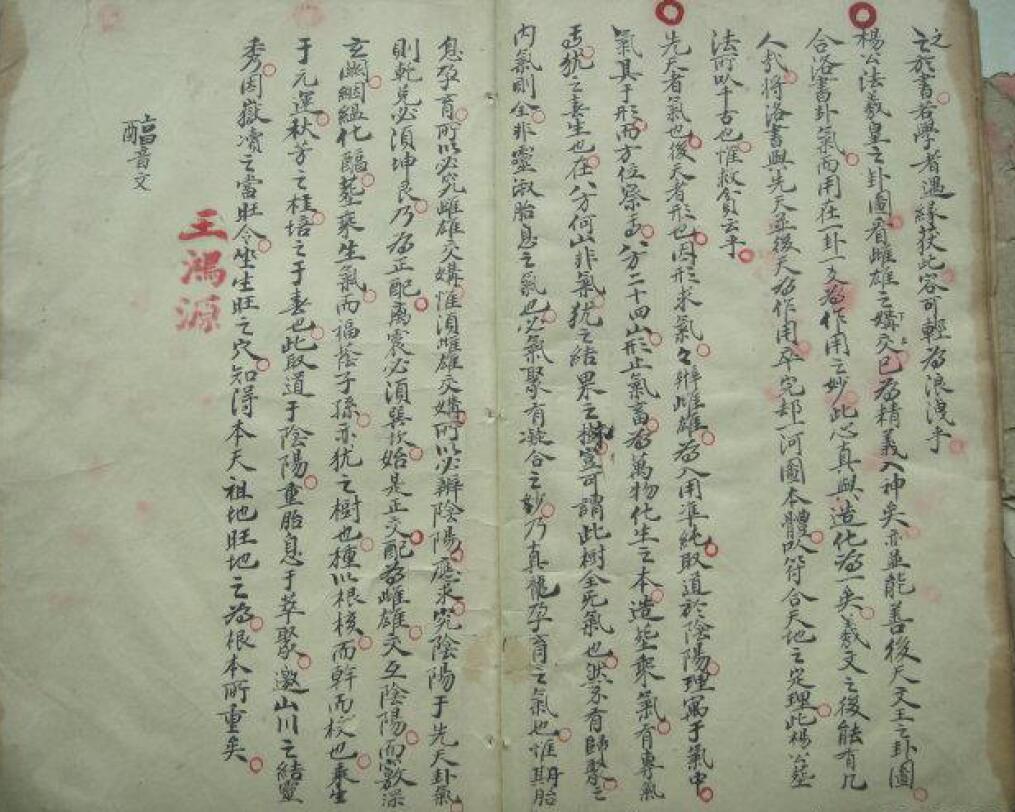 之於書若學者遇緣获此容可輕為浪洩乎
楊公法羲皇之卦圖看雌雄之媾交已為精義入神矣亦並能善後天文王之卦圖
合洛書卦氣而用在一卦一爻為作用之妙此心真與造化為一矣羲文之後能有几
人哉將洛書與先天並後天為作用卒完却一河圖本體以符合天地之定理此楊公
法所以千古也惟救貧云乎
先天者氣也後天者形也因形求氣々辨雌雄為入用準純取道於陰陽理寓于氣中
氣具于形而方位察焉八方二十四山形止氣畜為萬物化生之本造塋乘氣有專氣
焉犹之春生也在八方何山非氣犹之結果之樹豈可謂此樹全无氣也然必有所聚之
内氣則全非靈淑胎息之氣也必氣聚有凝合之妙乃真龍孕育之氣也惟其胎
息孕育所以必究雌雄交媾惟須雌雄交媾所以必辨陰陽應求究陰陽于先天卦氣
則乾兌必須坤艮乃為正配离震必須巽坎始是正交配為雌雄交互陰陽而
玄關絪緼化醞塋乘生氣而福蔭子孫亦犹之樹也種以根核而幹而枝也乘生
于元運秋芳之桂培之于春也此取道于陰陽重胎息于萃聚邀山川之結靈
秀因嶽瀆之當旺令坐生旺之穴知得本天祖地旺地之為根本所重矣
王鴻源
音文